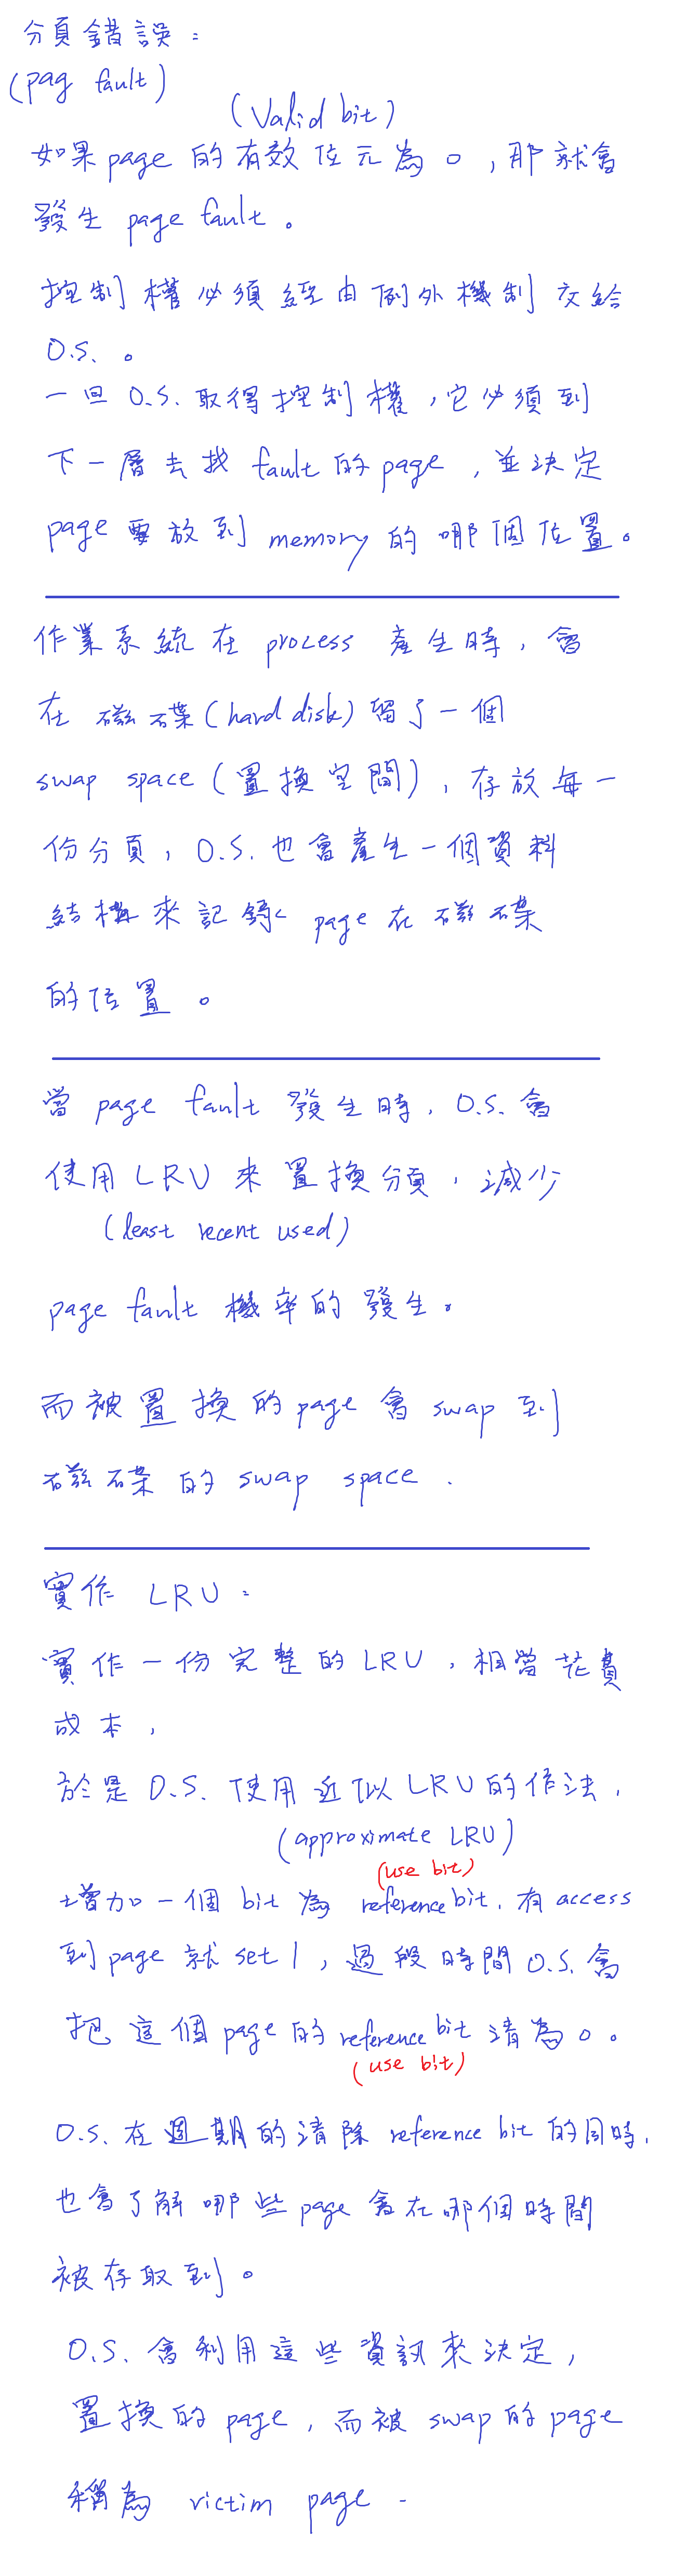 分頁錯誤：
(pag fault)
(Valid bit)
如果page 的有效位元為 0，那就會
發生 page fault。
控制權必須經由例外機制交給
O.S.。
一旦 O.S.取得控制權，它必須到
下一層去找 fault 的page，並決定
page要放到 memory 的哪個位置。
作業系統在 process 產生時，會
在磁碟(hard disk)留了一個
swap space(置換空間)，存放每一
份分頁，O.S.也會產生一個資料
結構來記錄 page 在磁碟
的位置。
當 page fault 發生時，O.S.會
使用LRU 來置換分頁，減少
(least recent used)
page fault 機率的發生。
而被置換的page會 swap 到
磁碟的 swap space．
實作 LRU：
實作一份完整的LRU，相當花費
成本，
於是 O.S. 使用近似LRU的作法，
(approximate LRU)
(use bit)
增加一個 bit 為 reference bit，有access
到page 就 set 1，過段時間O.S.會
把這個page 的 reference bit 清為0。
(use bit)
O.S.在週期的清除 reference bit 的同時，
也會了解哪些page 會在哪個時間
被存取到。
O.S. 會利用這些資訊來決定，
置換的 page，而被 swap 的 page
稱為 victim page．